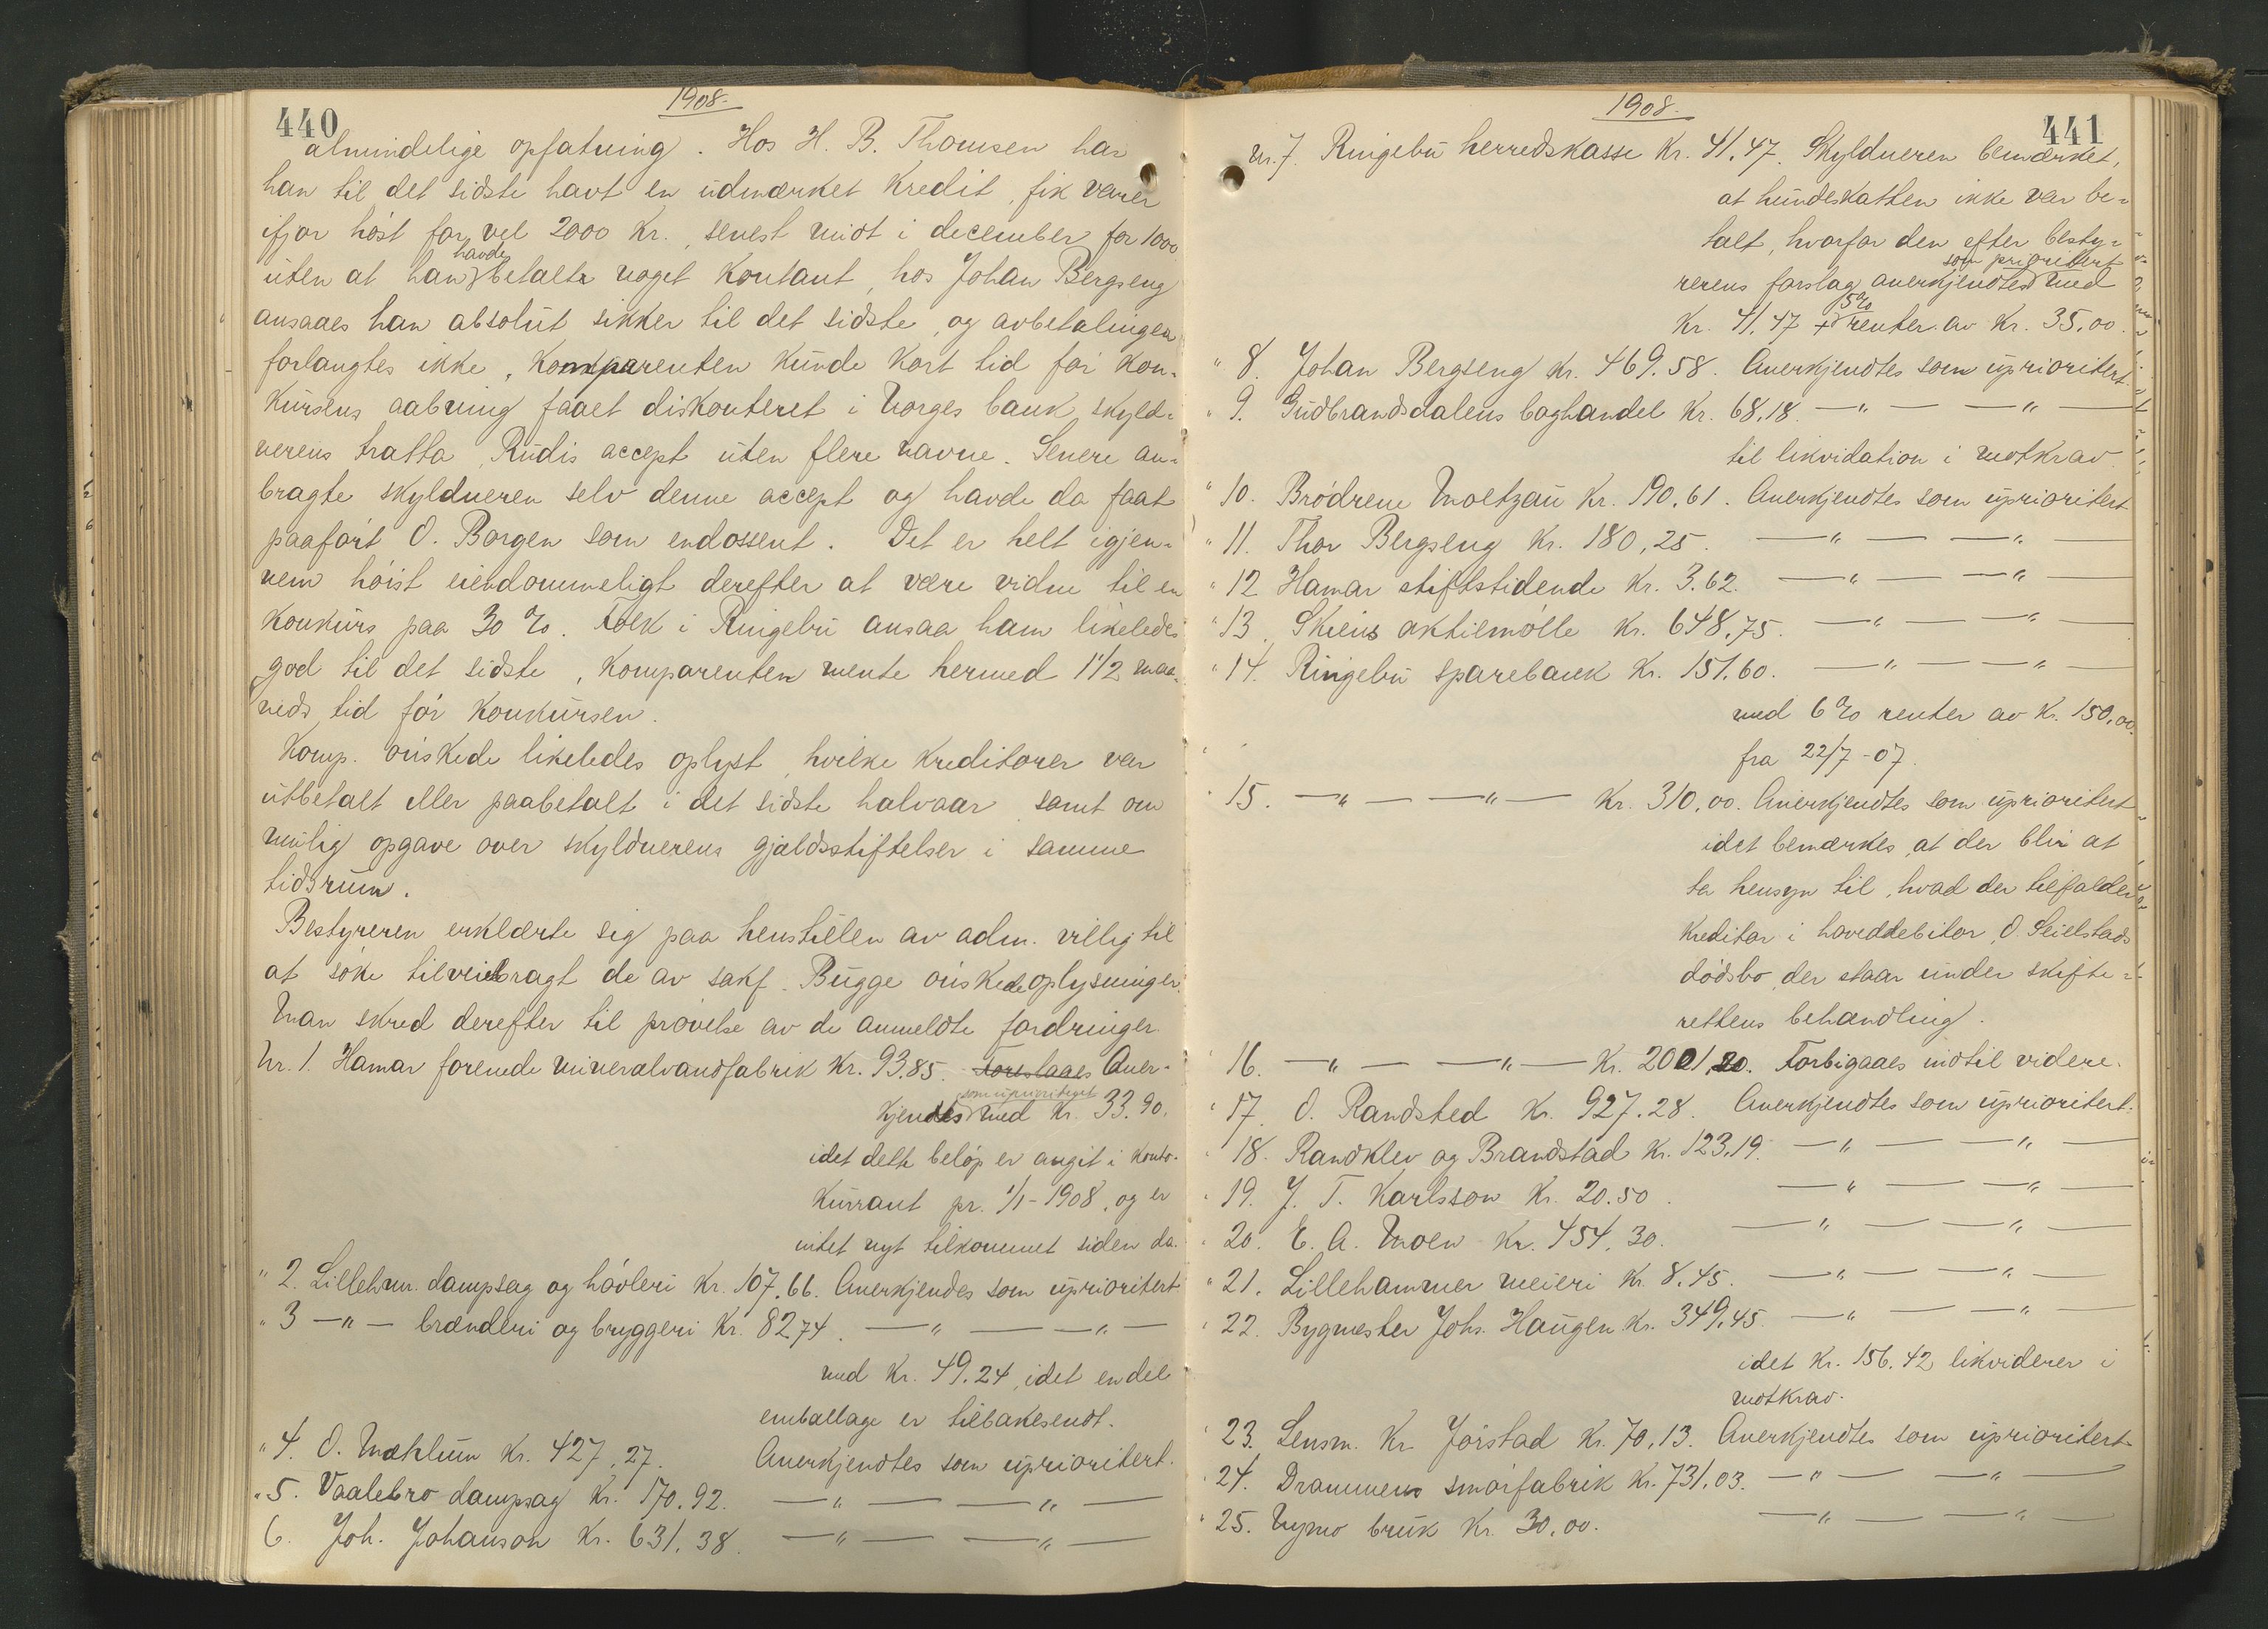 440
1908.
almindelige opfatning. Hos H. B. Thomsen har
han til det sidste havt en udmærket kredit, fik varer
ifjor høst for vel 2000 kr., senest midt i december for 1000
havde
uten at han betalte noget kontant, hos Johan Bergseng
ansaaes han absolut sikker til det sidste, og avbetalingen
forlangtes ikke, komparenten kunde kort tid før kon-
kursens aabning faaet diskonteret i Norges bank skyld-
nerens tratta, Rudis accept uten flere navne. Senere an-
bragte skyldneren selv denne accept og havde da faat
paaført O. Borgen som endossent. Det er helt igjen-
nem høist eiendommeligt derefter at være vidne til en
konkurs paa 30 %. Folk i Ringebu ansaa ham likeledes
god til det sidste, komparenten mente hermed 1 1/2 maa-
neds tid før konkursen.
Komp. ønskede likeledes oplyst, hvilke kreditorer var
utbetalt eller paabetalt i det sidste halvaar samt om
mulig opgave over skyldnerens gjældsstiftelser i samme
tidsrum.
Bestyreren erklærte sig paa henstillen av adm. villig til
at søke tilveiebragt de av sakf. Bugge ønskede oplysninger.
Man skred derefter til prøvelse av de anmeldte fordringer
Nr. 1. Hamar forenede mineralvandfabrik Kr. 93,85. Foreslaaes Aner-
som uprioritert
kjendes med Kr. 33.90.
idet dette beløp er angit i konto-
kurrant pr. 1/1-1908, og er
intet nyt tilkommet siden da.
" 2. Lillehm. dampsag og høvleri Kr. 107.66. Anerkjendes som uprioritert
" 3 —"— brænderi og bryggeri Kr. 82 74. —"— —"—
med Kr. 49.24, idet endel
emballage er tilbakesendt.
" 4. O. Mæhlum Kr. 427,27. Anerkjendtes som uprioritert.
" 5. Vaalebro dampsag Kr. 170.92. —"— —"—
6. Joh. Johanson Kr. 631.38. —"— —"—
441
1908.
Nr. 7. Ringebu herredskasse Kr. 41.47. Skyldneren bemærket,
at hundeskatten ikke var be-
talt, hvorfor den efter besty-
som prioritert
rerens forslag anerkjendtes med
5%
Kr. 41.47 + renter av Kr. 35,00.
" 8. Johan Bergseng Kr. 469.58. Anerkjendtes som uprioritert
" 9. Gudbrandsdalens boghandel Kr. 68,18. —"— —"—
til likvidation i motkrav
" 10. Brødrene Moltzau Kr. 190.61. Anerkjendtes som uprioritert
" 11. Thor Bergseng Kr. 180,25. —"— —"—
" 12 Hamar stiftstidende Kr. 3.62. —"— —"—
" 13. Skiens aktiemølle Kr. 648,75. —"— —"—
" 14. Ringebu sparebank Kr. 151.60. —"— —"—
med 6% renter av Kr. 150,00.
fra 22/7-07.
" 15. —"— —"— Kr. 310,00. Anerkjendtes som uprioritert
idet bemærkes, at der blir at
ta hensyn til, hvad der tilfalder
kreditor i hoveddebitor, O. Seielstads
dødsbo, der staar under skifte-
rettens behandling.
" 16. —"— —"— Kr. 2001,20. Forbigaaes indtil videre.
" 17. O. Randsted Kr. 927.28. Anerkjendtes som uprioritert.
" 18. Randklev og Brandstad Kr. 123.19. —"— —"—
" 19. J. T. Karlsson Kr. 20.50. —"— —"—
" 20. E. A. Moen Kr. 454,30. —"— —"—
" 21. Lillehammer meieri Kr. 8,45. —"— —"—
" 22. Bygmester Johs. Haugen Kr. 349,45. —"— —"—
idet Kr. 156.42 likviderer i
motkrav.
" 23. Lensm. Kr. Jørstad Kr. 70,13. Anerkjendtes som uprioritert
" 24. Drammens smørfabrik Kr. 731.03. —"— —"—
" 25. Nymo bruk Kr. 30.00. —"— —"—